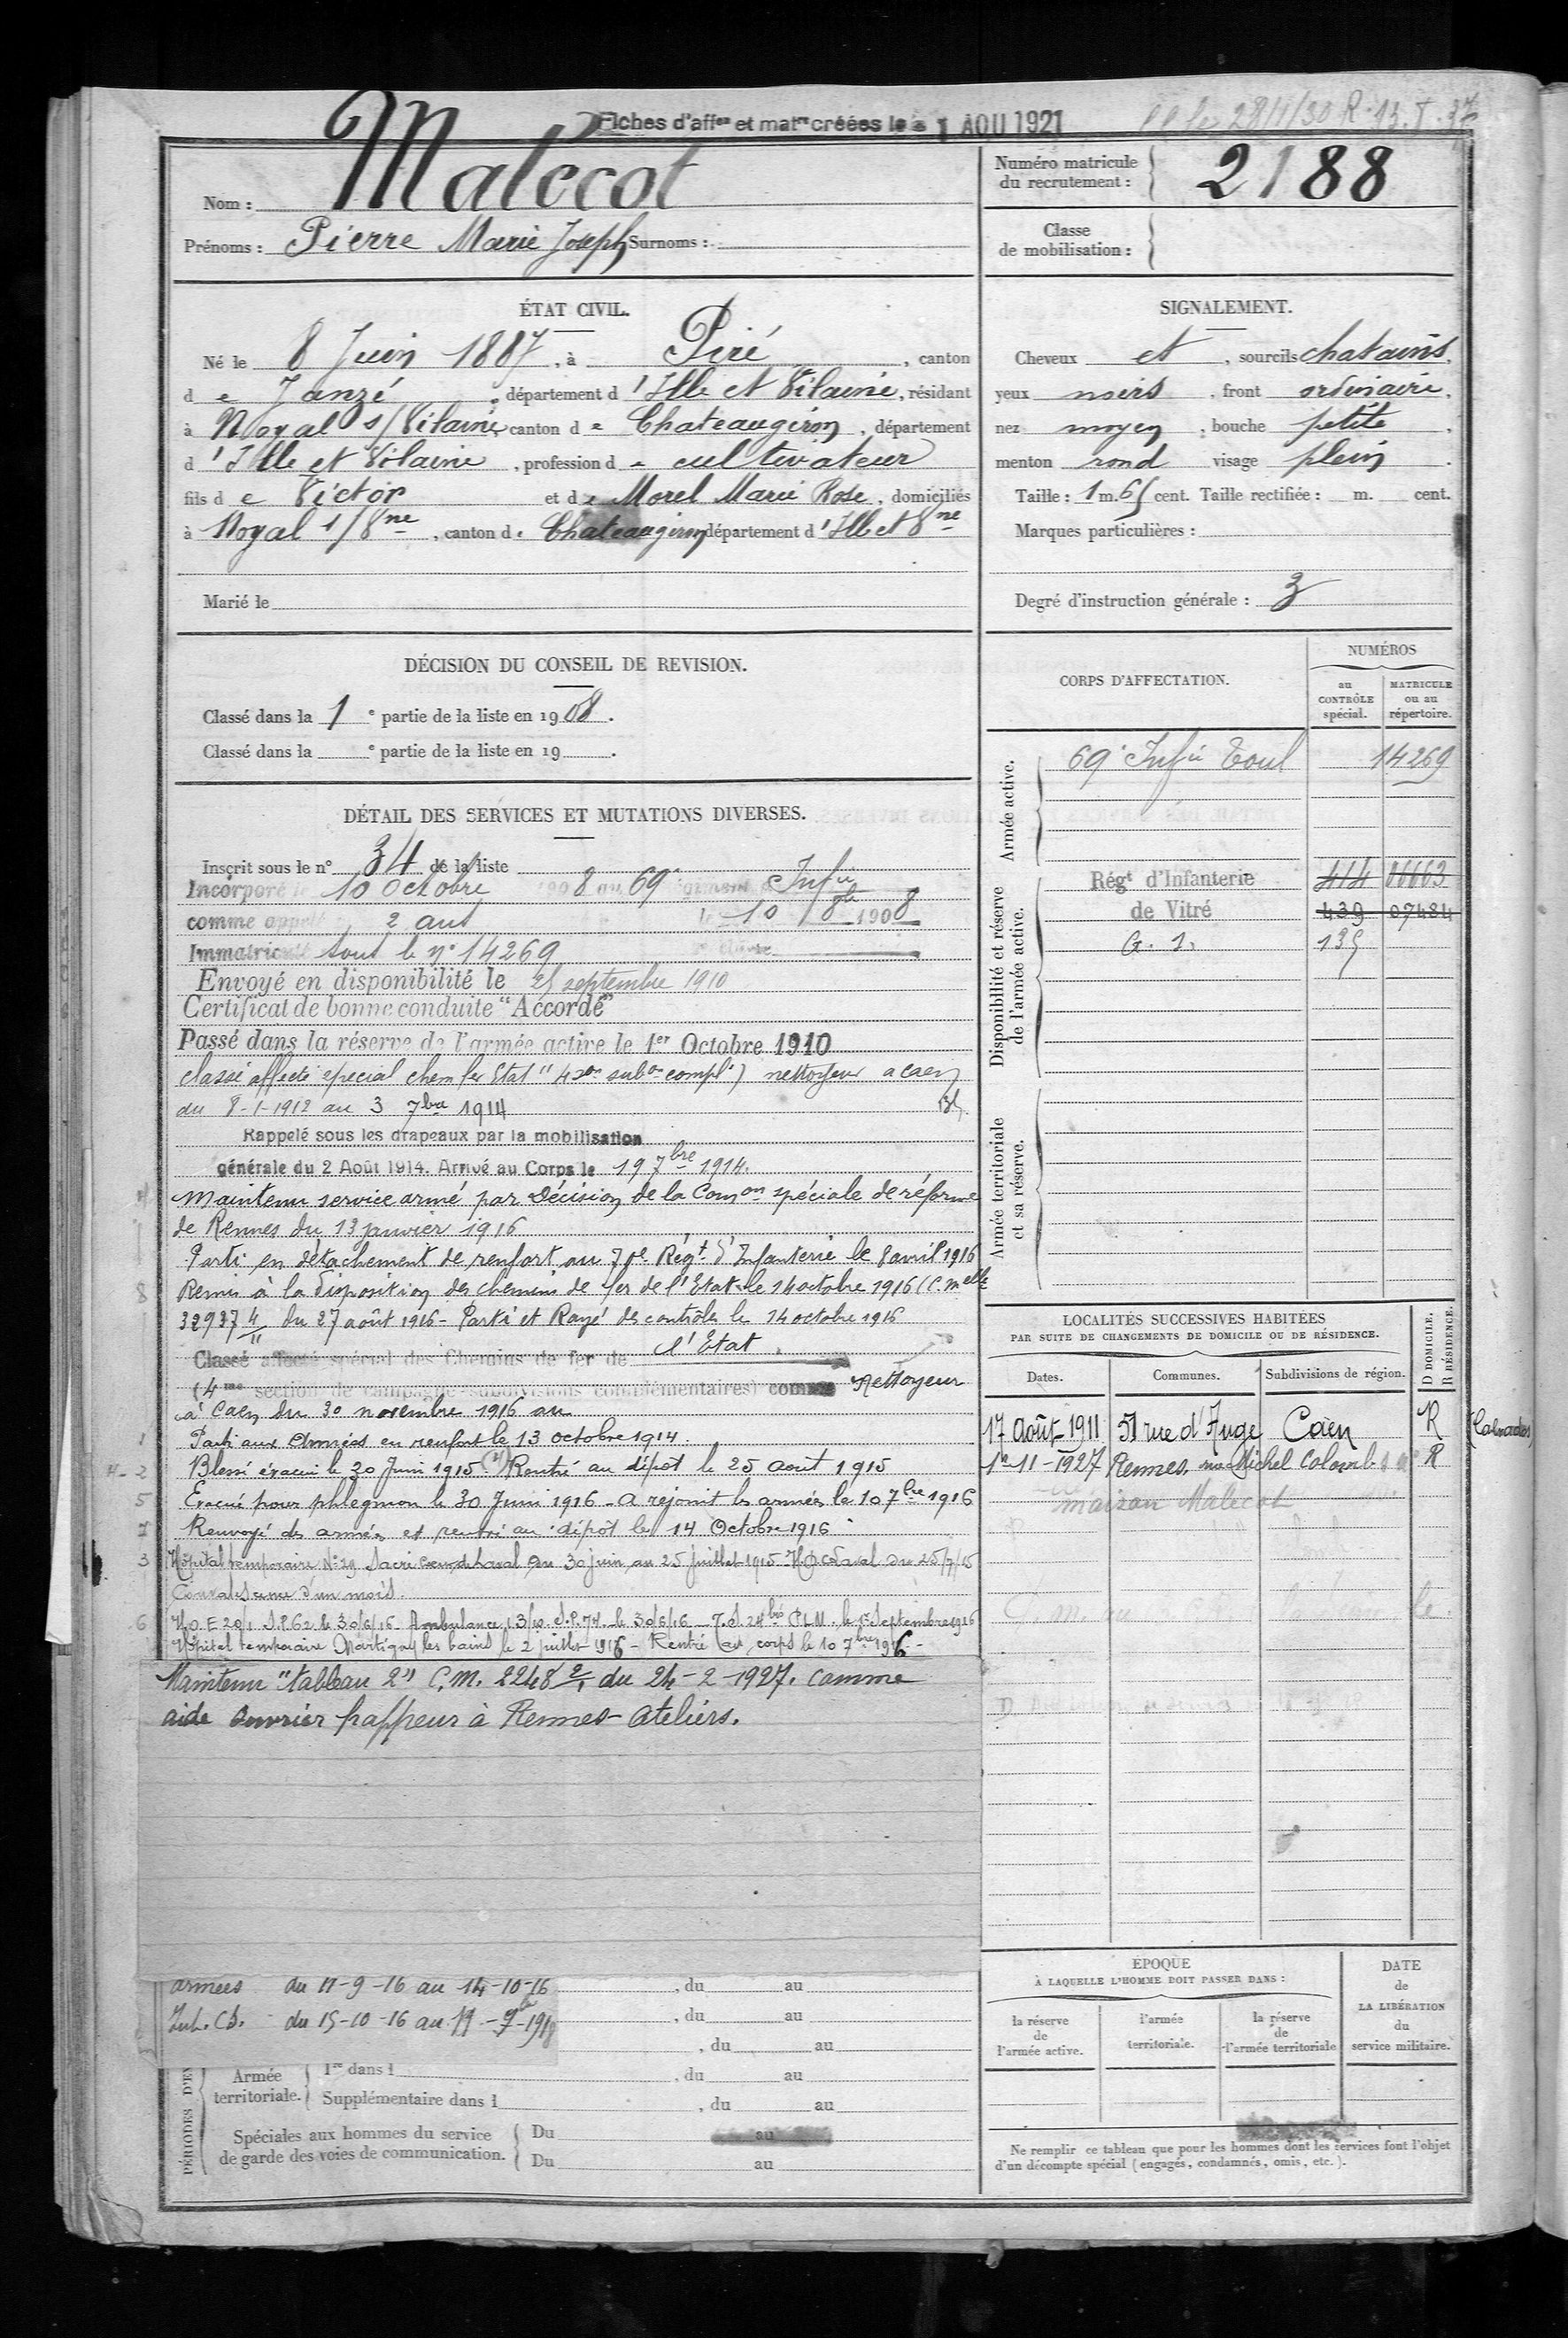 Fiches d'aff^on et mat^re créées le 1 AOU 1921
le 28/1/30 R.
Nom : Malécot
Prénoms : Pierre Marie Joseph Surnoms :
Numéro matricule du recrutement : 2188
Classe de mobilisation :
ÉTAT CIVIL.
Né le 8 Juin 1887, à Piré, canton
de Janzé, département d'Ille et Vilaine, résidant
à Noyal s/Vilaine, canton de Chateaugiron, département
d'Ille et Vilaine, profession de cultivateur
fils de Victor et de Morel Marie Rose, domiciliés
à Noyal s/V^ne, canton de Chateaugiron département d'Ille et V^ne
Marié le
SIGNALEMENT.
Cheveux et, sourcils chatains,
yeux noirs, front ordinaire,
nez moyen, bouche petite,
menton rond visage plein.
Taille : 1 m. 65 cent. Taille rectifiée : m. cent.
Marques particulières :
Degré d'instruction générale : 3
DÉCISION DU CONSEIL DE REVISION.
Classé dans la 1^e partie de la liste en 1908.
Classé dans la ^e partie de la liste en 19 .
DÉTAIL DES SERVICES ET MUTATIONS DIVERSES.
Inscrit sous le n° 34 de la liste
Incorporé le 10 Octobre 1908 au 69^e Régiment d'Inf^ie
comme appelé 2 ans le 10 8^bre 1908
Immatriculé sous le n° 14269
Envoyé en disponibilité le 25 septembre 1910
Certificat de bonne conduite "Accordé"
Passé dans la réserve de l'armée active le 1er Octobre 1910
classé affecté spécial chem fer Etat "4^e s^on sub^on compl^s) nettoyeur a caen
du 8-1-1912 au 3 7^bre 1914
Rappelé sous les drapeaux par la mobilisation
générale du 2 Août 1914. Arrivé au Corps le 19 7^bre 1914.
Maintenu service armé par Décision de la Com^on spéciale de réforme
de Rennes du 13 janvier 1916
Parti en détachement de renfort au 70^e Rég^t d'Infanterie le 8 avril 1916
8 Remis à la disposition des chemins de fer de l'Etat le 14 octobre 1916 (C.m^elle
32937 4/11 du 27 août 1916 - Parti et Rayé des contrôles le 14 octobre 1916
Classé affecté spécial des Chemins de fer de l'Etat
(4^me section de campagne subdivisions complémentaires) comme Nettoyeur
à Caen du 30 novembre 1916 au
1 Parti aux Armées en renfort le 13 octobre 1914.
4-2 Blessé évacué le 30 Juin 1915. (4) Rentré au dépôt le 25 août 1915
5 Evacué pour phlegmon le 30 Juin 1916 - a rejoint les armées le 10 7^bre 1916
7 Renvoyé des armées et rentré au dépôt le 14 Octobre 1916
3 Hôpital temporaire N° 29 Sacré coeur de Laval du 30 juin au 25 juillet 1915 H.O.C. Laval du 25/7/15
Convalescence d'un mois.
6 H.O.E 20/1 S.P. 62 le 30/6/16 - Ambulance 13/10. S.P. 74. le 30/6/16 - T.S. 24^bis P.L.M. le 1^er Septembre 1916
Hôpital temporaire Martigny les bains le 2 juillet 1916 - Rentré au corps le 10 7^bre 1916 -
Maintenu "tableau 2" C.M. 2248 2/1 du 24-2-1927. comme
aide ouvrier frappeur à Rennes-Ateliers.
armées du 11-9-16 au 14-10-16, du au
Int. Cb. du 15-10-16 au, du au
, du au
PÉRIODES D'EX
Armée territoriale. 1^re dans l, du au
Supplémentaire dans l, du au
Spéciales aux hommes du service Du au
de garde des voies de communication. Du au
CORPS D'AFFECTATION.
NUMÉROS
au CONTRÔLE spécial.
MATRICULE ou au répertoire.
Armée active.
69^e Inf^ie Toul 14269
Disponibilité et réserve de l'armée active.
Rég^t d'Infanterie 414 06663
de Vitré 439 07484
G. 1. 135
Armée territoriale et sa réserve.
LOCALITÉS SUCCESSIVES HABITÉES
PAR SUITE DE CHANGEMENTS DE DOMICILE OU DE RÉSIDENCE.
Dates. Communes. Subdivisions de région. D DOMICILE. R RÉSIDENCE.
17 Août 1911 51 rue d'Auge Caen R (Calvados)
1^er-11-1927 Rennes, rue Michel Colomb R
maison Malecot
ÉPOQUE
À LAQUELLE L'HOMME DOIT PASSER DANS :
la réserve de l'armée active.
l'armée territoriale.
la réserve de l'armée territoriale
DATE de LA LIBÉRATION du service militaire.
Ne remplir ce tableau que pour les hommes dont les services font l'objet
d'un décompte spécial (engagés, condamnés, omis, etc.).